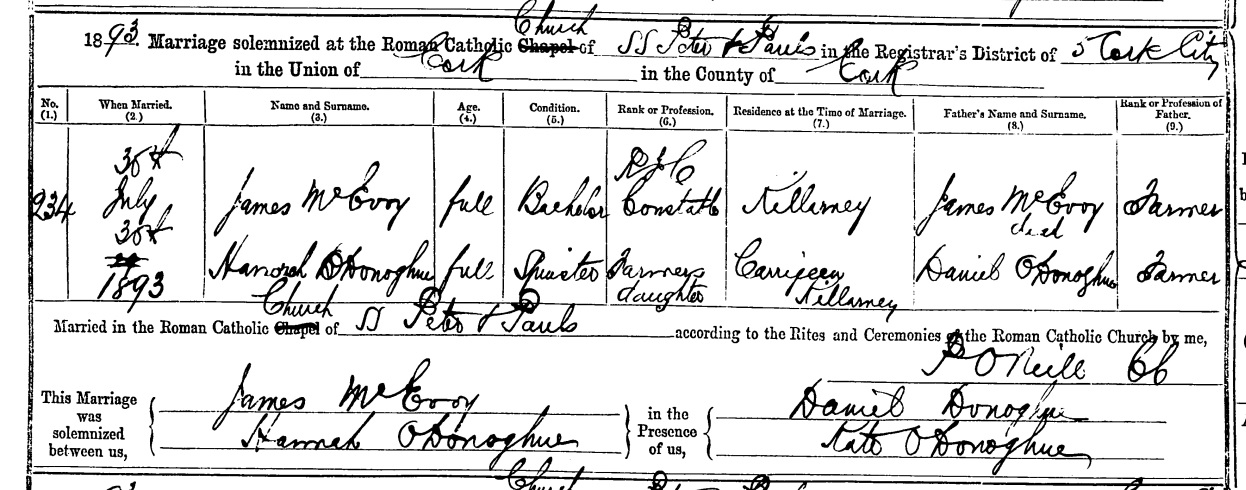 Church
1893. Marriage solemnized at the Roman Catholic Chapel of SS Peter & Pauls in the Registrar's District of 5 Cork City
in the Union of Cork in the County of Cork
No. (1.) When Married. (2.) Name and Surname. (3.) Age. (4.) Condition. (5.) Rank or Profession. (6.) Residence at the Time of Marriage. (7.) Father's Name and Surname. (8.) Rank or Profession of Father. (9.)
234 30th July 30th 1893
James McEvoy full Bachelor RIC Constable Killarney James McEvoy died Farmer
Hanorah O'Donoghue full Spinster Farmers daughter Carrigeen Killarney Daniel O'Donoghue Farmer
Church
Married in the Roman Catholic Chapel of SS Peter & Pauls according to the Rites and Ceremonies of the Roman Catholic Church by me,
P O'Neill CC
This Marriage was solemnized between us,
James McEvoy
Hannah O'Donoghue
in the Presence of us,
Daniel Donoghue
Kate O'Donoghue
Church